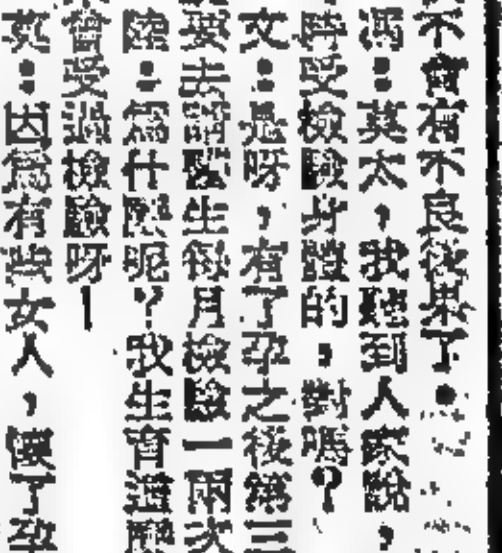 不會有不良後果了。
馮：莫太，我聽到人家說，
時受檢驗身體的，對嗎？
文：是呀，有了孕之後第三
要去請醫生每月檢驗一兩次
陸：為什麼呢？我生育這麼
曾受過檢驗呀！
莫：因為有些女人，懷了孕